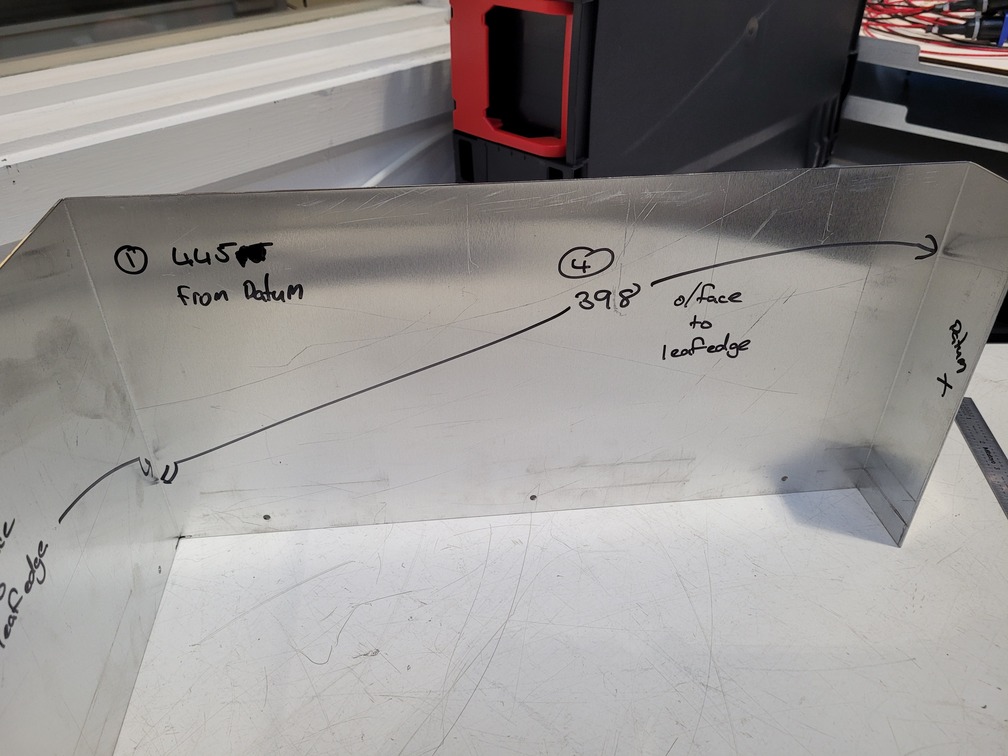 ① 445
From Datum
④
398
o/face
to
leaf edge
Datum
X
leaf edge